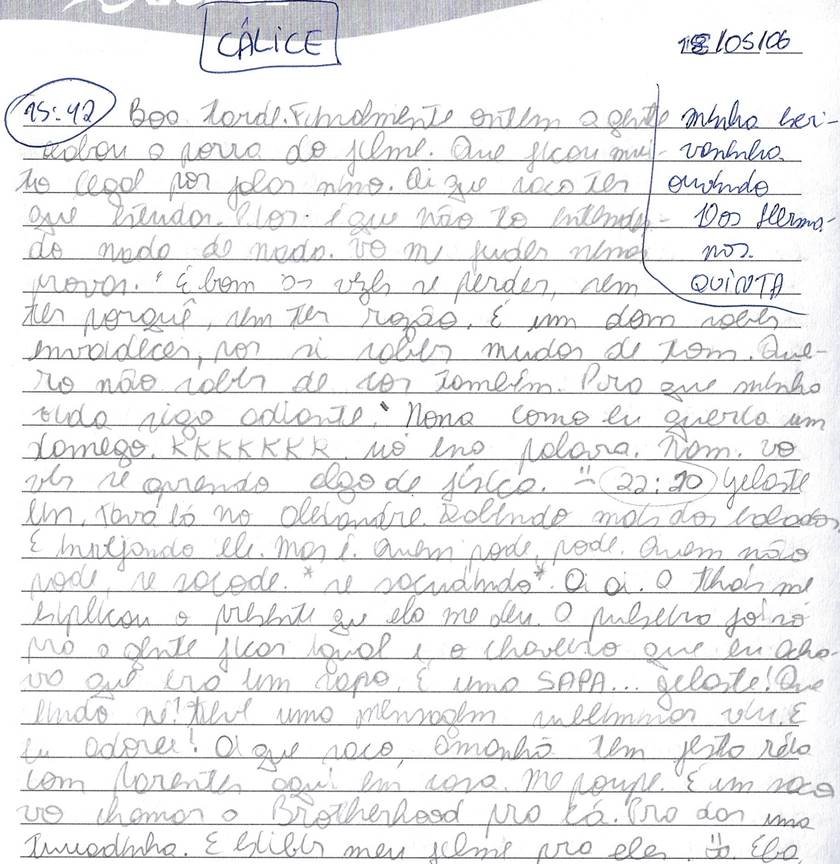 CÁLICE
18/05/06
15:42 Boa tarde. Finalmente ontem a gente
acabou a porra do filme. Que ficou mui-
to legal por falar nisso. Ai que saco ter
que estudar. Pior é que não to entenden-
do nada de nada. Vo me fuder nessa
prova. "É bom às vezes se perder, sem
ter porquê, sem ter razão. É um dom saber
envaidecer, por si saber mudar de tom. Que-
ro não saber de cor também. Pra que minha
vida siga adiante." Nana como eu queria um
KKKKKKK só essa palavra. vo
ver se aprendo algo de física. 22:20 gelaste
em. Tava lá no alexandre. mais das baladas
E invejando ele. Mas é. Quem pode, pode. Quem não
pode, se sacode. *se sacudindo* a Thais me
explicou o presente que ela me deu. A pulseira foi só
pra a gente ficar igual e o chaveiro que eu acha-
va que era um sapo. É uma SAPA... gelaste! Que
lindo né! Teve uma mensagem viu. E
eu adorei! Ai que saco, amanhã tem festa
com parentes aqui em casa. Me poupe. É um saco
vo chamar o Brotherhood pra cá. Pra dar uma
E exibir meu filme pra eles.
minha
ouvindo
Los Herma-
nos.
QUINTA